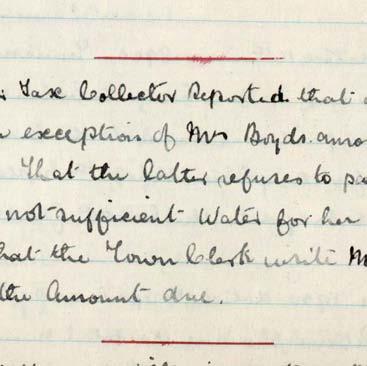 Tax Collector Reported that
exception of Mrs Boyds amo
That the latter refuses to pa
not sufficient Water for her
hat the Town Clerk write M
the Amount due.